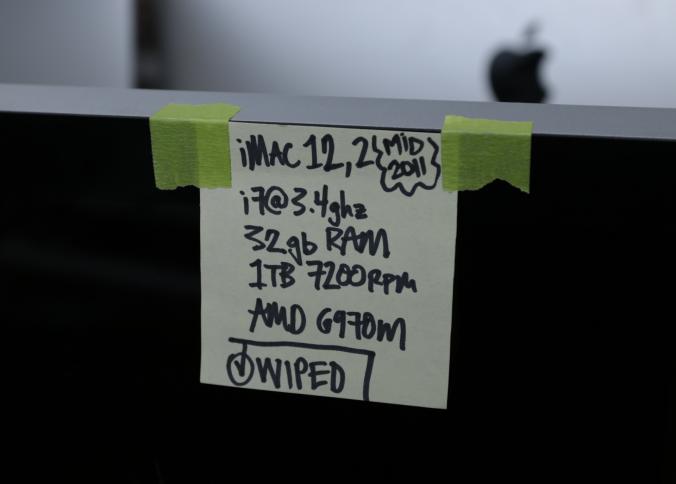 iMAC 12,2 MiD 2011
i7@3.4ghz
32gb RAM
1TB 7200RPM
AMD 6970M
WIPED